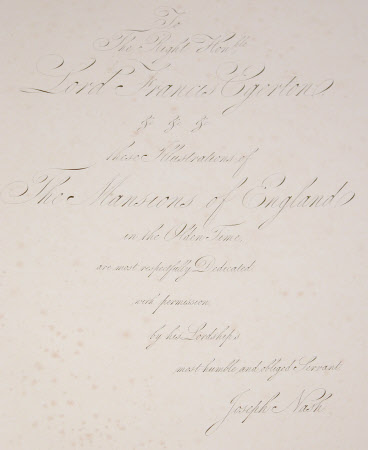 To
The Right Honble
Lord Francis Egerton
& & &
these Illustrations of
The Mansions of England
in the Olden Time,
are most respectfully Dedicated
with permission
by his Lordship's
most humble and obliged Servant
Joseph Nash.